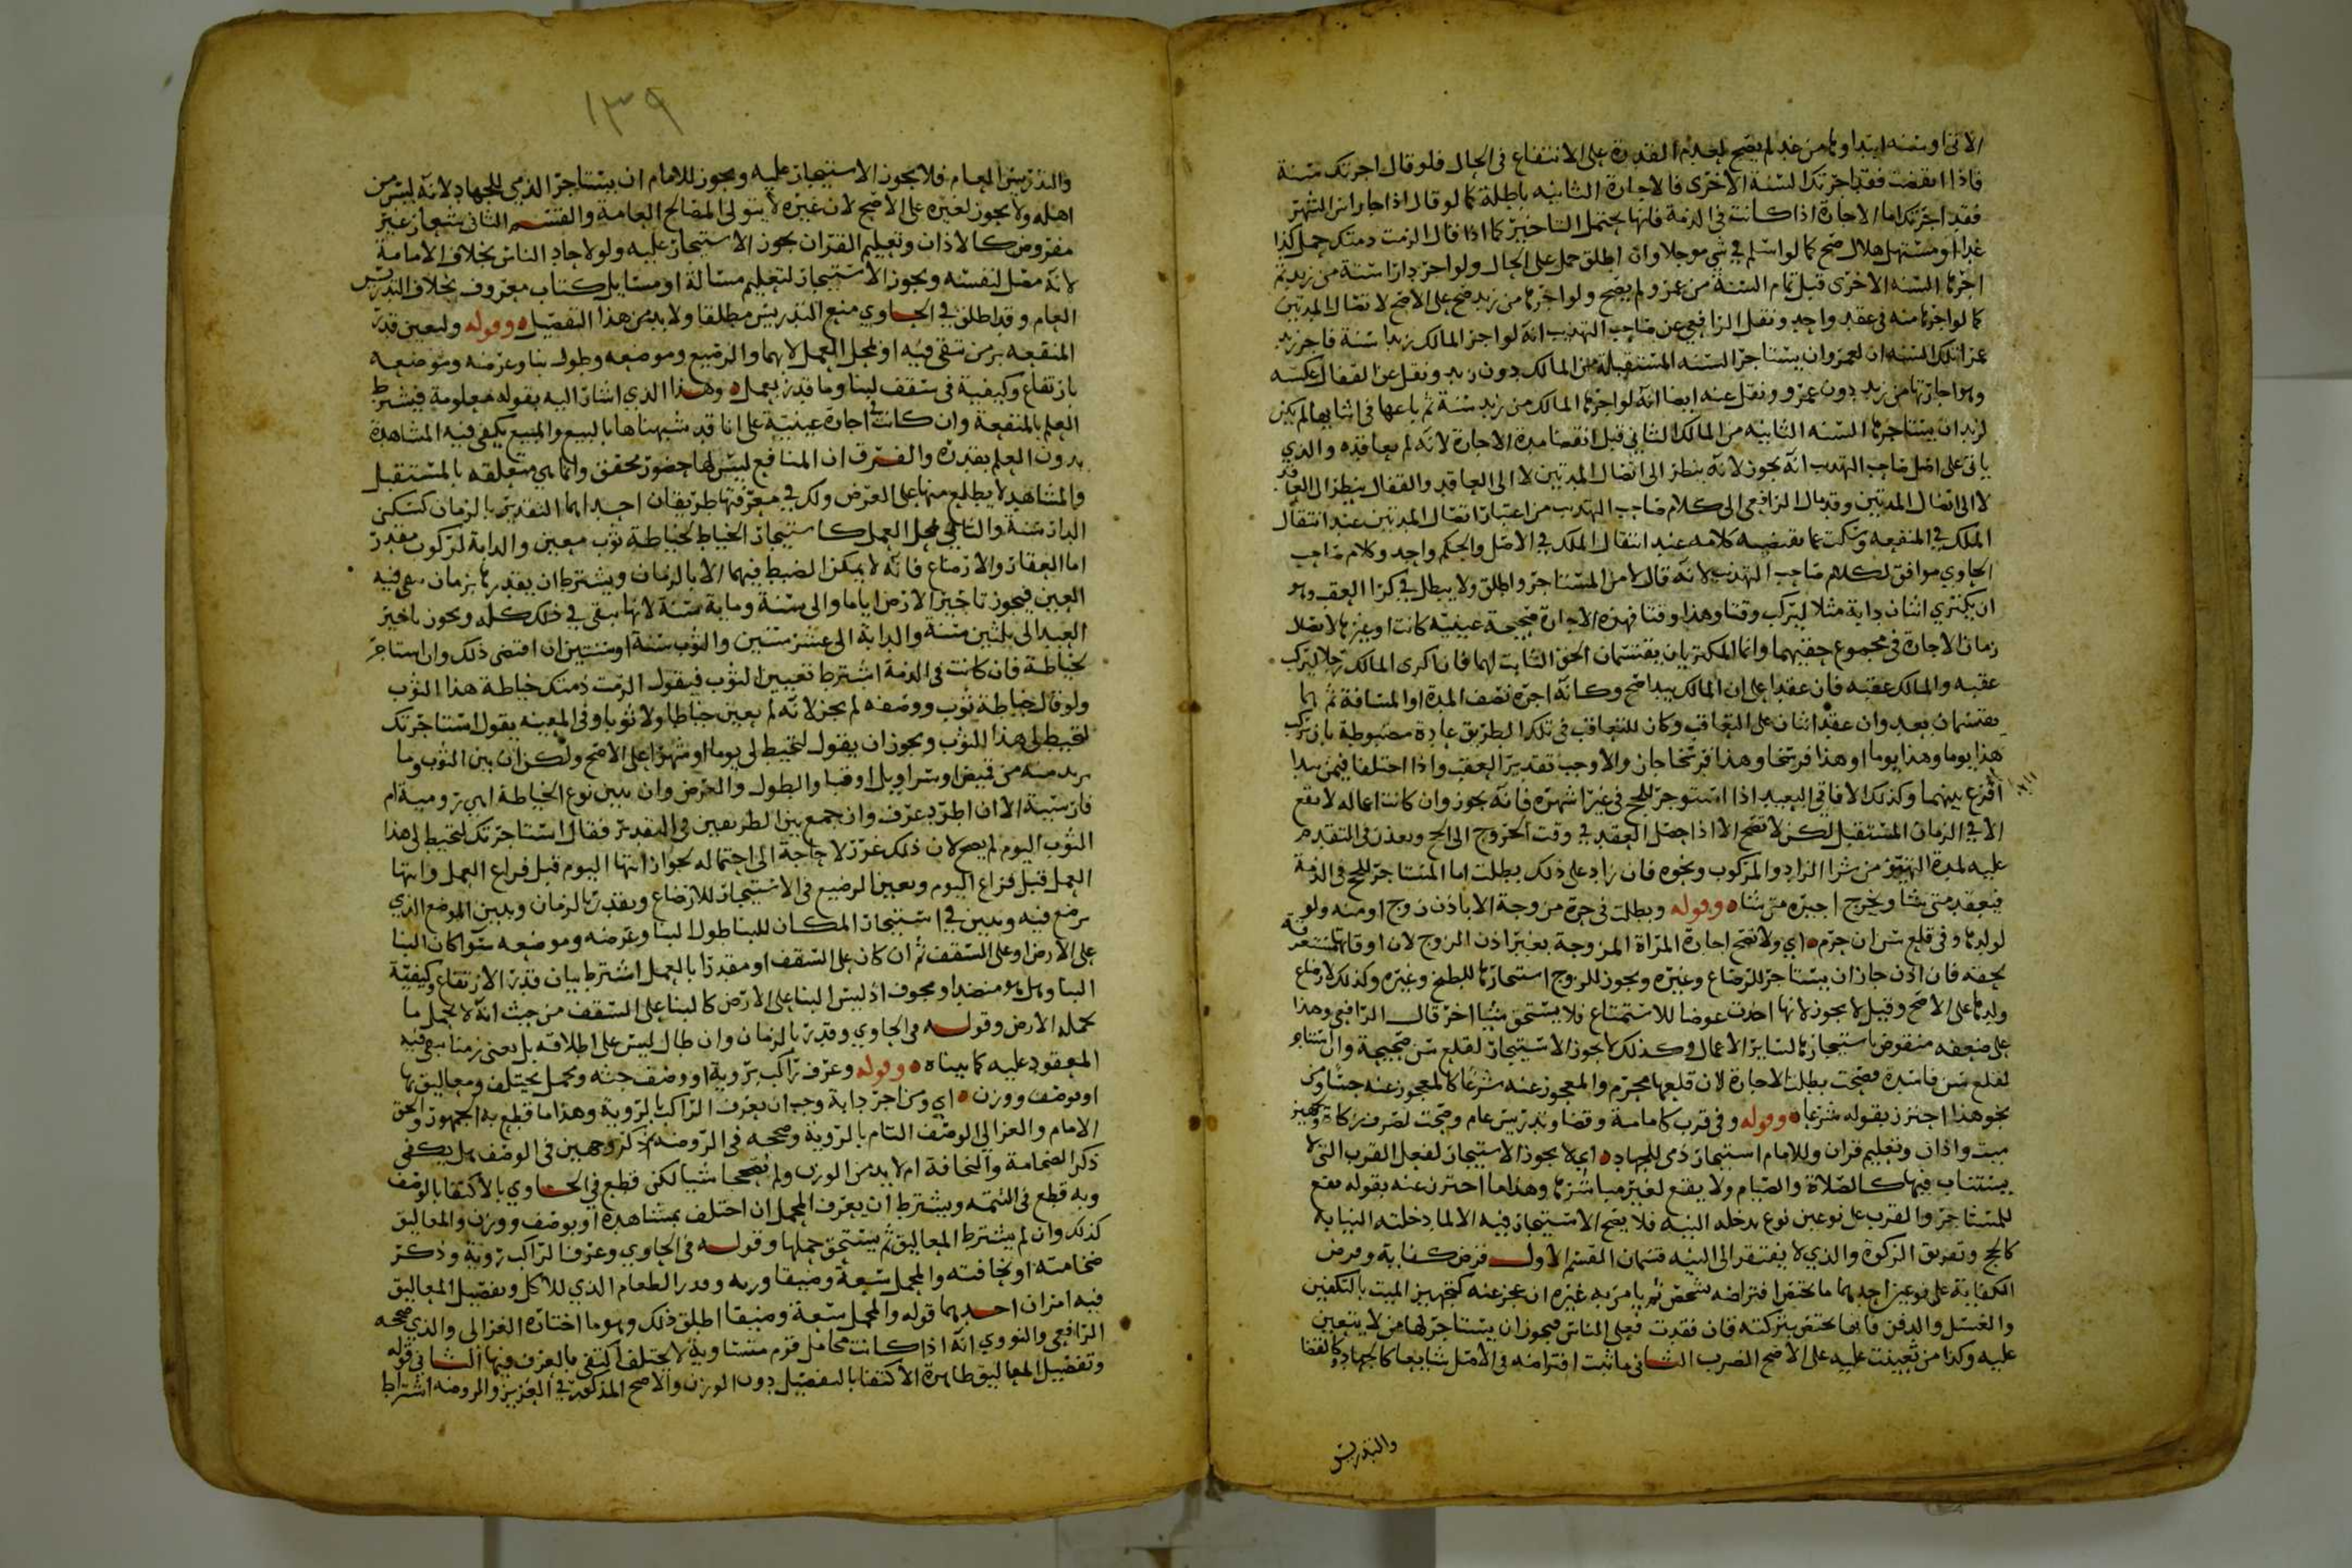 الآتي او سنة ابتداوها من غد لم يصح لعدم القدرة على الانتفاع في الحال فلو قال اجرتك سنة
فاذا انقضت فقد اجرتك السنة الاخرى فالاجارة الثانية باطلة كما لو قال اذا جا راس الشهر
فقد اجرتك اما الاجارة اذا كانت في الذمة فانها يحتمل التاخير كما اذا قال الزمت ذمتك حمل كذا
غدا او مستهل هلال صح كما لو اسلم في شي موجلا وان اطلق حمل على الحال ولو اجر دارا سنة من زيد ثم
اجرها السنة الاخرى قبل تمام السنة من عمرو لم يصح ولو اجرها من زيد صح على الاصح لاتصال المدتين
كما لو اجرها منه في عقد واحد ونقل الرافعي عن صاحب التهذيب انه لو اجر المالك زيدا سنة فاجر زيد
عمرا تلك السنة ان لعمرو ان يستاجر السنة المستقبلة من المالك دون زيد ونقل عن القفال عكسه
وهو اجارتها من زيد دون عمرو ونقل عنه ايضا انه لو اجرها المالك من زيد سنة ثم باعها في اثنائها لم يكن
لزيد ان يستاجرها السنة الثانية من المالك الثاني قبل انقضا مدة الاجارة لانه لم يعاقده والذي
ياتي على اصل صاحب التهذيب انه يجوز لانه ينظر الى اتصال المدتين لا الى العاقد والقفال ينظر الى العاقد
لا الى اتصال المدتين وقد مال الرافعي الى كلام صاحب التهذيب من اعتبار اتصال المدتين عند انتقال
الملك في المنفعة وسكت عما يقتضيه كلامه عند انتقال الملك في الاصل والحكم واحد وكلام صاحب
الحاوي موافق لكلام صاحب التهذيب لانه قال لا من المستاجر واطلق ولا يبطل في كرا العقب وهو
ان يكتري اثنان دابة مثلا ليركب وقتا وهذا وقتا فهذه الاجارة صحيحة عينية كانت او غيرها لاتصال
زمان الاجارة في مجموع حقيهما وانما المكتريان يقتسمان الحق الثابت لهما فان اكرى المالك رجلا ليركب
عقبه والمالك عقبه فان عقدا على ان المالك يبدا صح وكانه اجره نصف المدة او المسافة ثم انهما
يقتسمان بعد وان عقد اثنان على التعاقب وكان للتعاقب في تلك الطريق عادة مضبوطة بان يركب
هذا يوما وهذا يوما او هذا فرسخا وهذا فرسخا جاز والا وجب تقدير العقب واذا اختلفا فيمن يبدا
اقرع بينهما وكذلك الافاقي البعيد اذا استوجر للحج في غير اشهره فانه يجوز وان كانت اعماله لا تقع
الا في الزمان المستقبل لكن لا تصح الا اذا حصل العقد في وقت الخروج الى الحج ويعذر في التقدم
عليه لمدة التهيؤ من شرا الزاد والمركوب ونحوه فان زاد على ذلك بطلت اما المستاجر للحج في الذمة
فيعقد متى شا ويخرج اجيره متى شا وقوله وبطلت في حرة مزوجة الا باذن زوج او منه ولو
لولدها وفي قلع سن ان حرم اي ولا تصح اجارة المراة المزوجة بغير اذن الزوج لان اوقاتها مستغرقة
بحقه فان اذن جاز ان يستاجر للرضاع وغيره ويجوز للزوج استيجارها للطبخ وغيره وكذلك لارضاع
ولدها على الاصح وقيل لا يجوز لانها اخذت عوضا للاستمتاع فلا يستحق شيئا اخر قال الرافعي وهذا
على ضعفه منقوض باستيجارها لساير الاعمال وكذلك لا يجوز الاستيجار لقلع سن صحيحة وان استاجر
لقلع سن فاسدة فصحت بطلت الاجارة لان قلعها محرم والمعجوز عنه شرعا كالمعجوز عنه حسا وعن
نحو هذا احترز بقوله شرعا وقوله وفي قرب كامامة وقضا وتدريس عام وصحت لصرف زكاة وتجهيز
ميت واذان وتعليم قران وللامام استيجار ذمي للجهاد اي لا يجوز الاستيجار لفعل القرب التي لا
يستناب فيها كالصلاة والصيام ولا يقع لغير مباشرها وهذا ما احترز عنه بقوله يقع
للمستاجر والقرب على نوعين نوع يدخله النية فلا يصح الاستيجار فيه الا لما دخلته النيابة
كالحج وتفريق الزكوة والذي لا يفتقر الى النية قسمان القسم الاول فرض كفاية وفرض
الكفاية على نوعين احدهما ما يختص افتراضه بشخص ثم يامر به غيره ان عجز عنه كتجهيز الميت بالتكفين
والغسل والدفن فانها تختص بتركته فان فقدت فعلى الناس فيجوز ان يستاجر لها من لا يتعين
عليه وكذا من تعينت عليه على الاصح الضرب الثاني ما ثبت افتراضه في الاصل شايعا كالجهاد والقضا
والتدريس
١٣٩
والتدريس العام فلا يجوز الاستيجار عليه ويجوز للامام ان يستاجر الذمي للجهاد لانه ليس من
اهله ولا يجوز لغيره على الاصح لان غيره لا يتولى المصالح العامة والقسم الثاني شعار غير
مفروض كالاذان وتعليم القران يجوز الاستيجار عليه ولو لاحاد الناس بخلاف الامامة
لانه مصل لنفسه ويجوز الاستيجار لتعليم مسالة او مسايل كتاب معروف بخلاف التدريس
العام وقد اطلق في الحاوي منع التدريس مطلقا ولا بد من هذا التفصيل وقوله ولتعين قدر
المنفعة بزمن تبقى فيه او لمحل العمل لا بهما والرضيع وموضعه وطول بنا وعرضه وموضعه
بارتفاع وكيفية في سقف لبنا وما قدر بعمل وهذا الذي اشار اليه بقوله معلومة فيشترط
العلم بالمنفعة وان كانت اجارة عينية على انا قد شبهناها بالبيع والمبيع يكفي فيه المشاهدة
بدون العلم بقدره والفرق ان المنافع ليس لها حضور محقق وانما هي متعلقه بالمستقبل
والمشاهد لا يطلع منها على الغرض ولك في معرفتها طريقان احداهما التقدير بالزمان كسكن
الدار سنة والثاني لمحل العمل كاستيجار الخياط لخياطة ثوب معين والدابة لركوب مقدر
اما العقار والارضاع فانه لا يمكن الضبط فيهما الا بالزمان ويشترط ان يقدرها بزمان يبقى فيه
العين فيجوز تاجير الارض اياما والى سنة ومايه سنة لانها تبقى في ذلك كله ويجوز تاجير
العبد الى ثلثين سنة والدابة الى عشر سنين والثوب سنة او سنتين ان اقتضى ذلك وان استاجر
لخياطة فان كانت في الذمة اشترط تعيين الثوب فيقول الزمت ذمتك خياطة هذا الثوب
ولو قال خياطة ثوب ووصفه لم يجز لانه لم يعين خياطا ولا ثوبا وفي المعينة يقول استاجرتك
لتخيط لي هذا الثوب ويجوز ان يقول لتخيط لي يوما او شهرا على الاصح ولكن ان بين الثوب وما
يريد منه من قميص او سراويل او قبا والطول والعرض وان يبين نوع الخياطة اهي رومية ام
فارسية الا ان اطرد عرف وان جمع بين الطريقين في التقدير فقال استاجرتك لتخيط لي هذا
الثوب اليوم لم يصح لان ذلك غرر لا حاجة الى احتماله لجواز انتها اليوم قبل فراغ العمل وانتها
العمل قبل فراغ اليوم وتعين الرضيع في الاستيجار للارضاع ويقدر بالزمان ويبين الموضع الذي
يرضع فيه ويبين في استيجار المكان للبنا طول البنا وعرضه وموضعه سوا كان البنا
على الارض او على السقف ثم ان كان على السقف او مقدرا بالعمل اشترط بيان قدر الارتفاع وكيفية
البنا وهل هو منضد او مجوف اذ ليس البنا على الارض كالبنا على السقف من حيث انه لا يحمل ما
تحمله الارض وقوله في الحاوي وقدر بالزمان وان طال ليس على اطلاقه بل يعني زمنا يبقى فيه
المعقود عليه كما بيناه وقوله وعرف راكب برؤية او وصف جثه ومحمل يختلف ومعاليق بها
او بوصف ووزن اي ومن اجر دابة وجب ان يعرف الراكب بالرؤية وهذا ما قطع به الجمهور والحق
الامام والغزالي الوصف التام بالرؤية وصححه في الروضة ثم ذكر وجهين في الوصف هل يكفي
ذكر الضخامة والنحافة ام لا بد من الوزن ولم يصححا شيا لكن قطع في الحاوي بالاكتفا بالوصف
وبه قطع في التتمه ويشترط ان يعرف المحمل ان اختلف بمشاهدة او بوصف ووزن والمعاليق
كذلك وان لم يشترط المعاليق لم يستحق حملها وقوله في الحاوي وعرفا الراكب رؤية وذكر
ضخامته او نحافته والمحمل سعة وضيقا وزنه وقدر الطعام الذي للاكل وتفصيل المعاليق
فيه امران احدهما قوله والمحمل سعة وضيقا اطلق ذلك وهو ما اختاره الغزالي والذي صححه
الرافعي والنووي انه اذا كانت محامل قوم متساوية لا تختلف اكتفى بالعرف فيها الثاني قوله
وتفصيل المعاليق ظاهره الاكتفا بالتفصيل دون الوزن والاصح المذكور في العزيز والروضة اشتراط